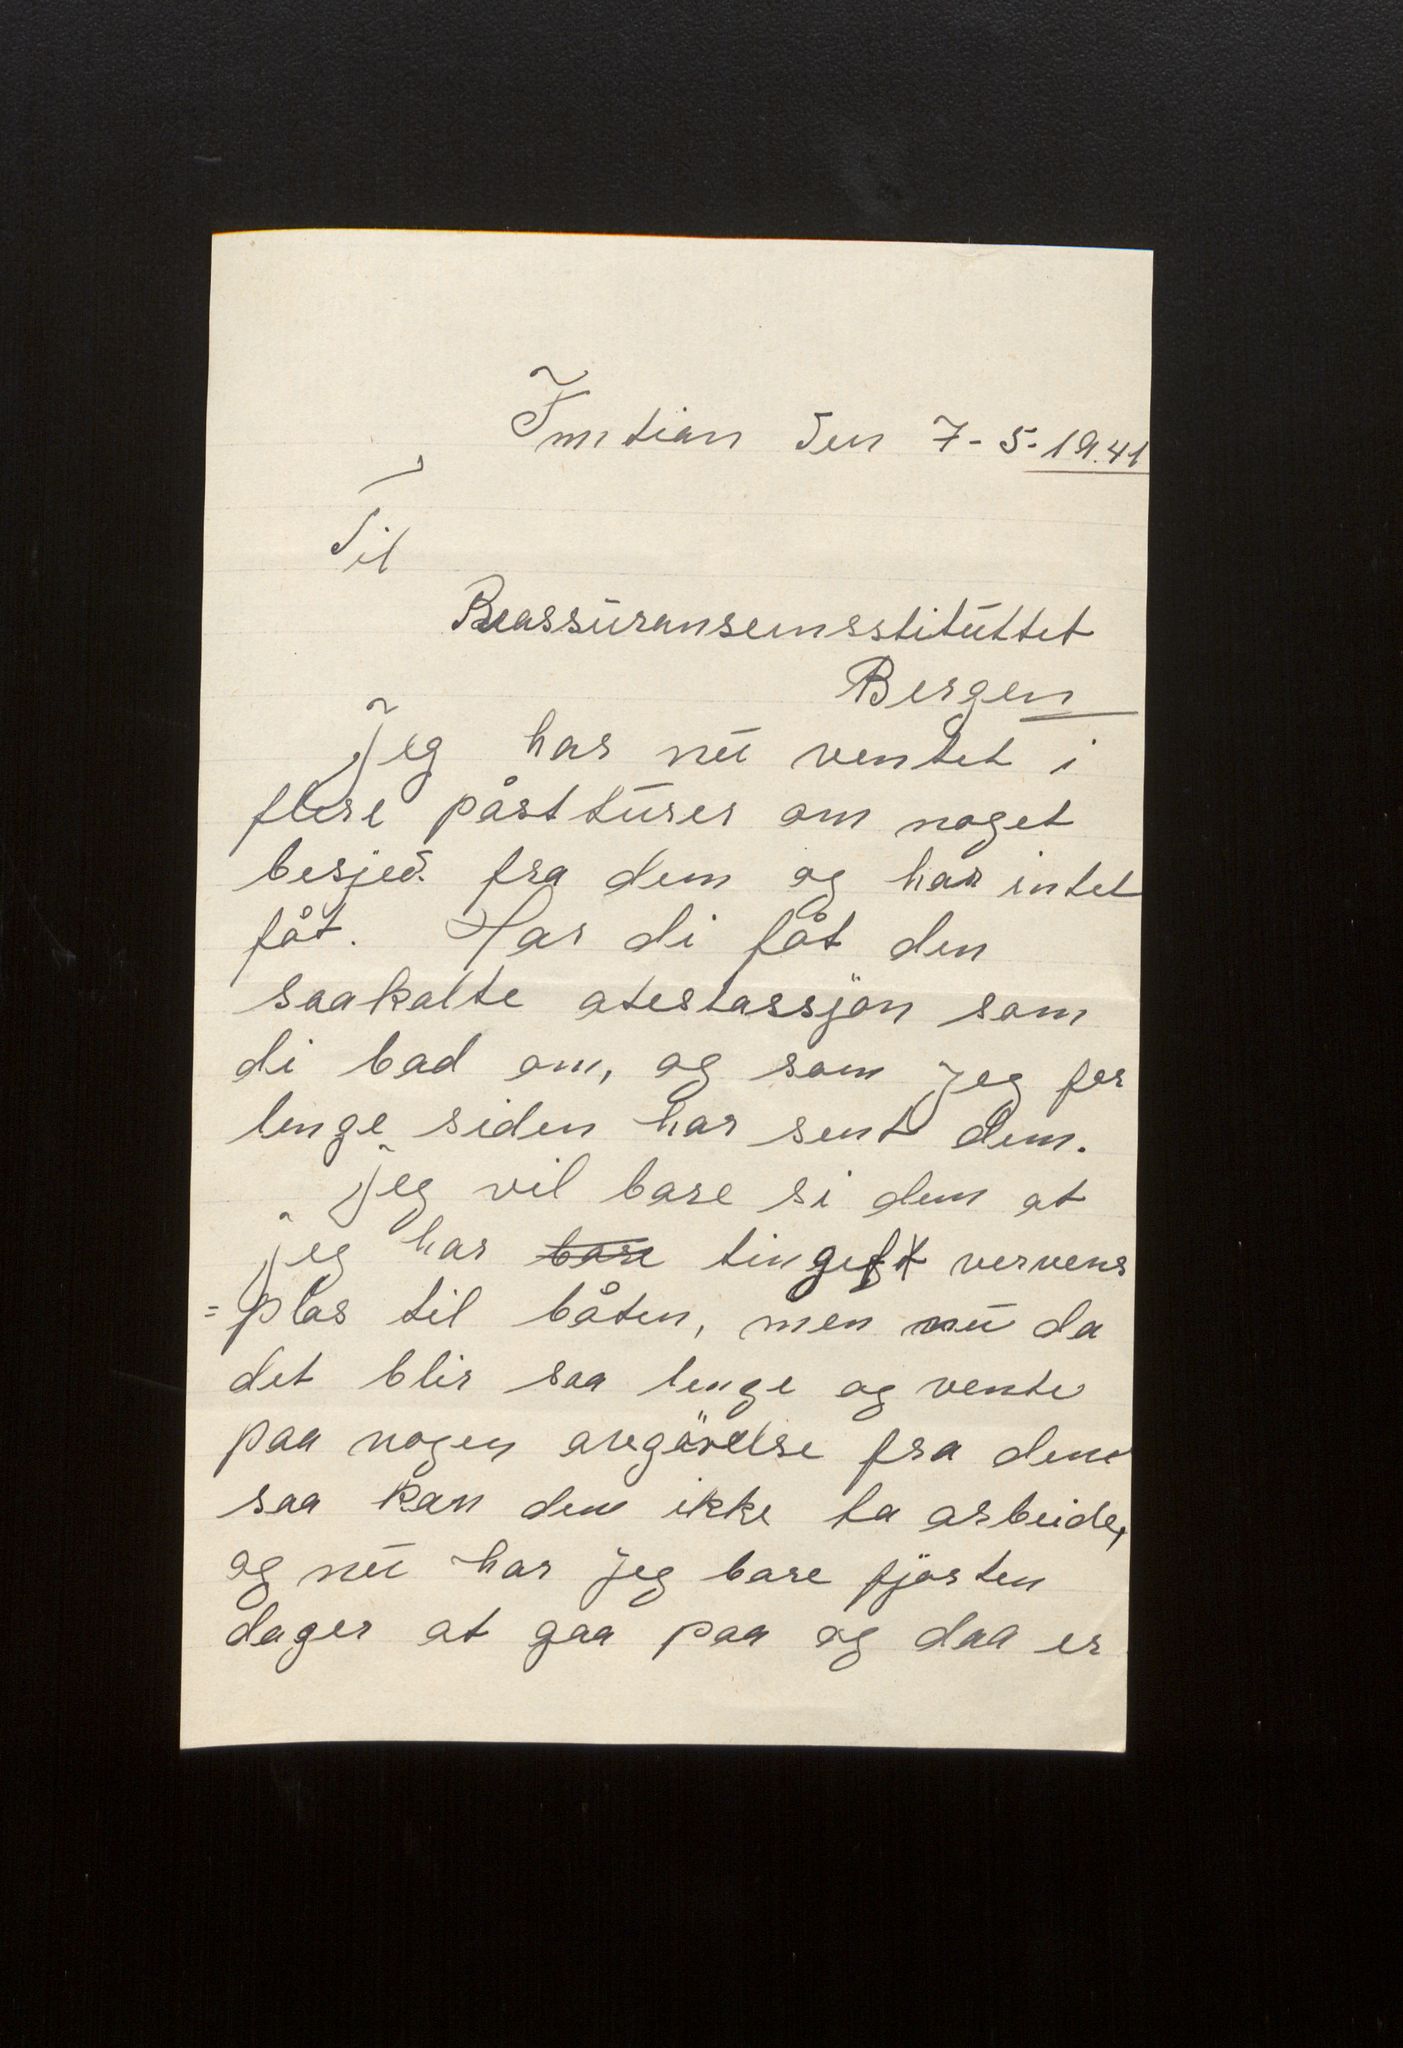 Imtian den 7-5-1941
Til
Reassuranseinsstituttet
Bergen
Jeg har nu ventet i
flere påstturer om noget
besjed fra dem og har intet
fåt. Har di fåt den
saakalte atestassjon som
di bad om, og som jeg for
lenge siden har sent dem.
Jeg vil bare si dem at
jeg har bare tinget vervens
=plas til båten, men nu da
det blir saa lenge og vente
paa nogen avgörelse fra dem
saa kan dem ikke ta arbeide,
og nu har jeg bare fjorten
dager at gaa paa og daa er